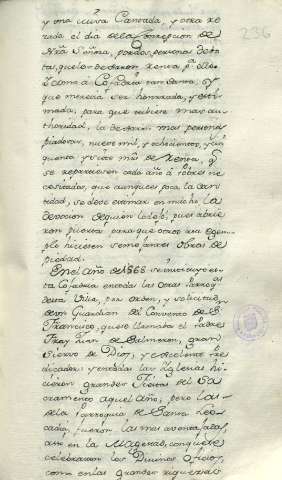 236
y una misa Cantada, y otra re
zada el dia de la Concepcion de
Nrâ Señora, por dos personas de
tas, que lo dexaron renta pª ello.
Y como à Cofadria tan Santa, y
que merecia ser honrrada, y esti
mada, para que tubiese mas au
thoridad, la dexaron mas personas
piadosas, nueve mil, y ochocientos, y cin
quenta y siete mrs de Renta, q
se repartiesen cada año à Pobres ne
cesitados, que aunque es poca la can
tidad, se debe estimar en mucho la
devocion de quien lo dejo, pues abrie
ron puerta para que otros à su exem
plo hiciesen semejantes obras de
piedad.
En el año de 1565 se instituyó en
ta Cofadria en todas las otras Parroqs
de esta Villa, por orden, y solicitud
de un Guardian del Convento de S.
Francisco, que se llamaba el Padre
Fray Juan de Salmeron, gran
Siervo de Dios, y excelente Pre
dicador: y en todas las Iglesias hi
cieron grandes Fiestas del Sa
cramento aquel año, pero las
de la Parroquia de Santa Leo
cadia, fueron las mas aventajadas,
asi en la Magestad, con que se
celebraron los Divinos Oficios,
como en las grandes riquezas